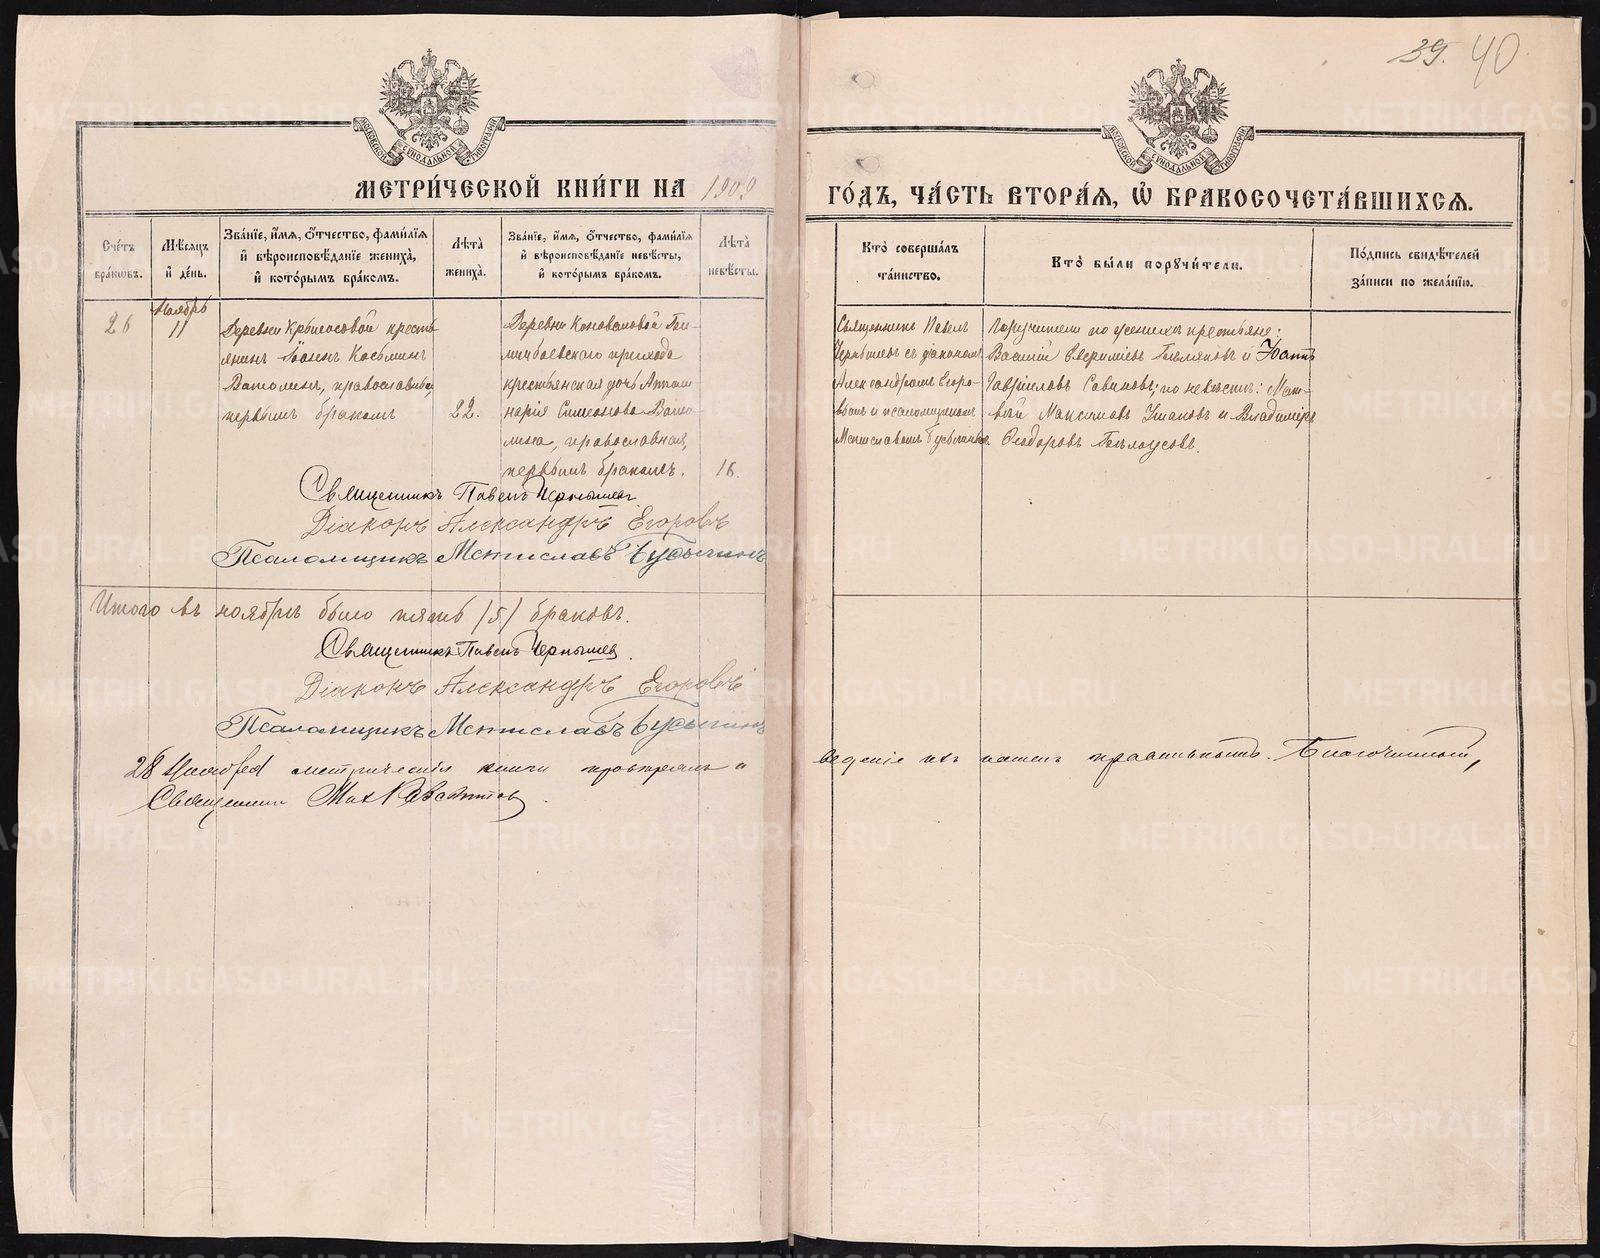 39. 40
МОСКОВСКОЙ СУНОДАЛЬНОЙ ТИПОГРАФІИ
МОСКОВСКОЙ СУНОДАЛЬНОЙ ТИПОГРАФІИ
МЕТРИ́ЧЕСКОЙ КНИ́ГИ НА 1909
ГО́ДЪ, ЧА́СТЬ ВТОРА́Я, Ѽ БРАКОСОЧЕТА́ВШИХСЯ.
Сче́тъ бра́кѡвъ.
Мѣ́сяцъ и҆ де́нь.
Зва́нїе, и҆́мя, ѻ҆́тчество, фами́лїя и҆ вѣроисповѣ́данїе жениха̀, и҆ кото́рымъ бра́комъ.
Лѣ́та жениха̀.
Зва́нїе, и҆́мя, ѻ҆́тчество, фами́лїя и҆ вѣроисповѣ́данїе невѣ́сты, и҆ кото́рымъ бра́комъ.
Лѣ́та невѣ́сты.
Кто̀ соверша́лъ та́инство.
Кто̀ бы́ли порꙋчи́тели.
По́дпись свидѣ́телей за́писи по жела́нїю.
26
Ноябрь
11
Деревни Крылосовой кресть
янинъ Іоаннъ Косьминъ
Ватолинъ, православный,
первымъ бракомъ
22.
Деревни Коноваловой
прихода
крестьянская дочь Аполли
нарія Симеонова Вато-
лина, православная,
первымъ бракомъ.
18.
Священникъ Павелъ
Чернышевъ съ діакономъ
Александромъ Егоро-
вымъ и псаломщикомъ
Мстиславомъ Бусыгинымъ.
Поручители по женихѣ крестьяне:
Василій Бѣляковъ и Іоаннъ
Гавріиловъ Савиновъ; по невѣстѣ: Мат-
вѣй Максимовъ Ушаковъ и Владиміръ
Ѳеодоровъ Бѣлоусовъ.
Священникъ Павелъ Чернышевъ
Діаконъ Александръ Егоровъ
Псаломщикъ Мстиславъ Бусыгинъ
Итого въ ноябрѣ было пять /5/ браковъ.
Священникъ Павелъ Чернышев.
Діаконъ Александръ Егоровъ
Псаломщикъ Мстиславъ Бусыгинъ
28 метрическія книги провѣрялъ и
веденіе ихъ нашелъ правильнымъ. Благочинный,
Священникъ
METRIKI.GASO-URAL.RU